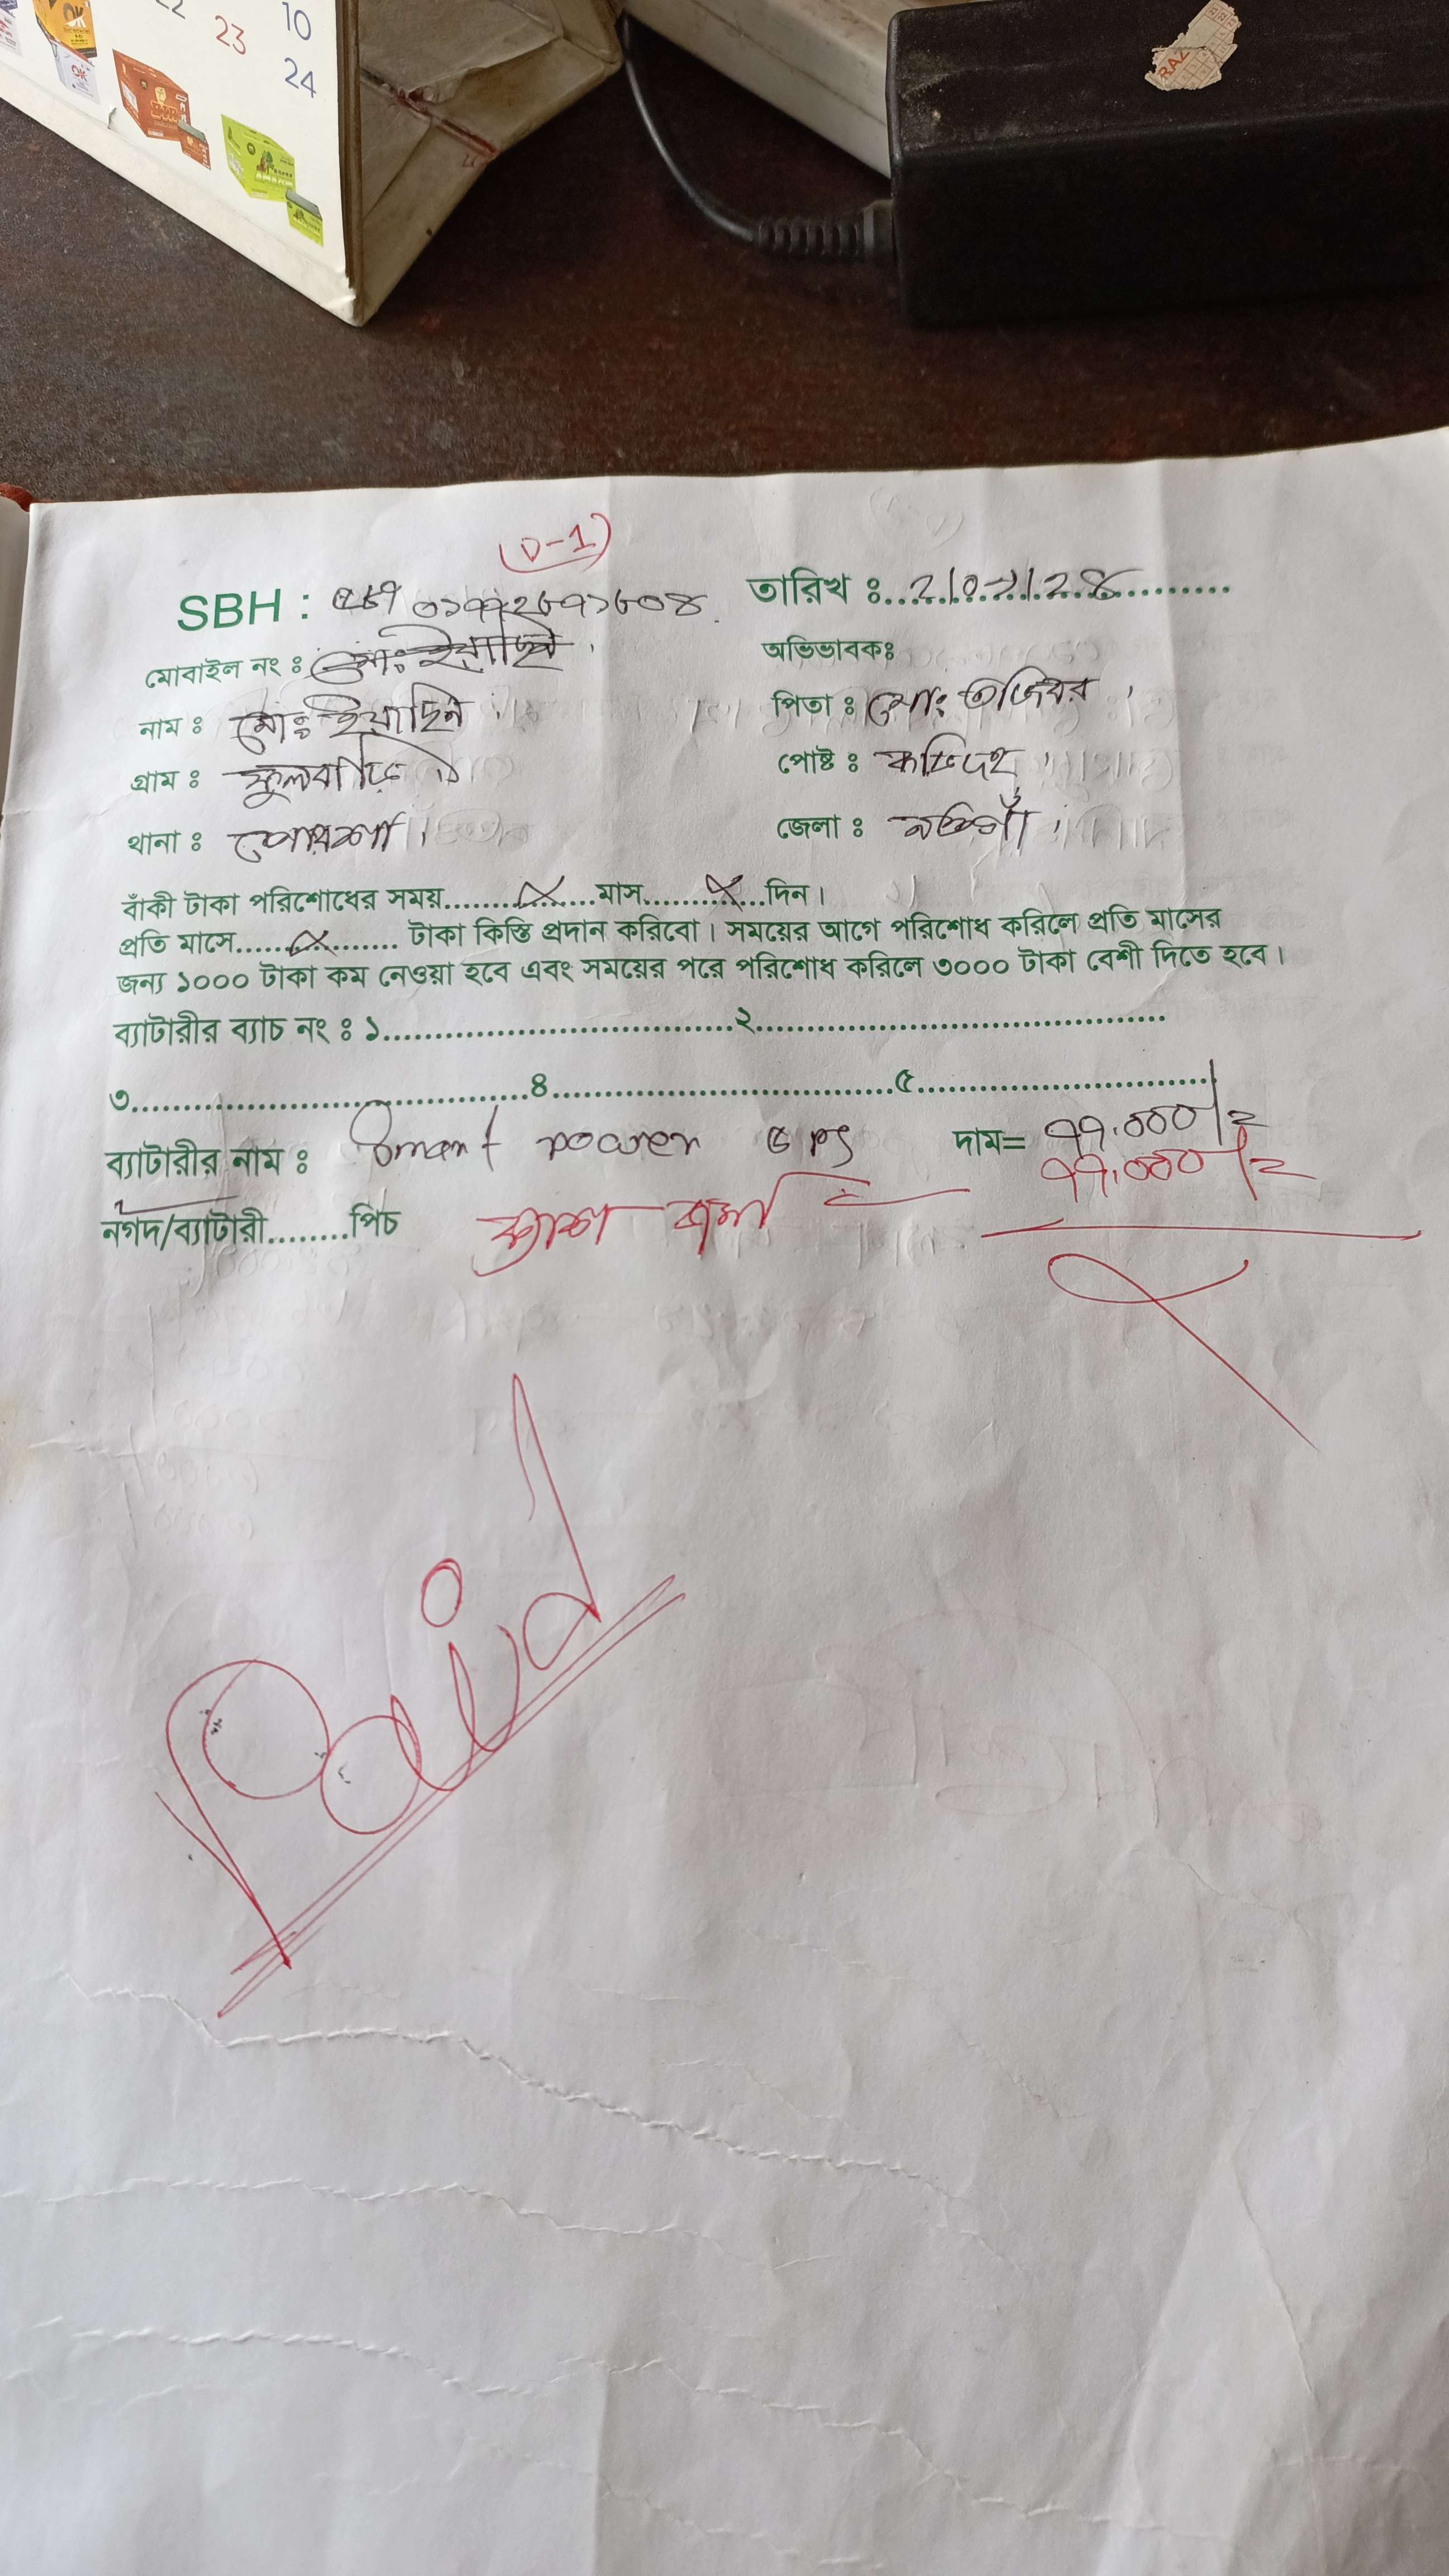 22 10
23 24
(D-1)
SBH : ০১৭৭২৬৭১৬০৪ তারিখ ঃ
মোবাইল নং ঃ মোঃ ইয়াছিন অভিভাবকঃ
নাম ঃ মোঃ ইয়াছিন পিতা ঃ মোঃ তজিবর
গ্রাম ঃ ফুলবাড়ি পোষ্ট ঃ
থানা ঃ পোরশা জেলা ঃ নওগাঁ
বাঁকী টাকা পরিশোধের সময়..............মাস..............দিন।
প্রতি মাসে................ টাকা কিস্তি প্রদান করিবো। সময়ের আগে পরিশোধ করিলে প্রতি মাসের
জন্য ১০০০ টাকা কম নেওয়া হবে এবং সময়ের পরে পরিশোধ করিলে ৩০০০ টাকা বেশী দিতে হবে।
ব্যাটারীর ব্যাচ নং ঃ ১................................২................................
৩................................৪................................৫................................
ব্যাটারীর নাম ঃ Smart power ৫ ps দাম= ৭৭.০০০/=
৭৭.০০০/=
নগদ/ব্যাটারী........পিচ ক্যাশ জমা =
Paid